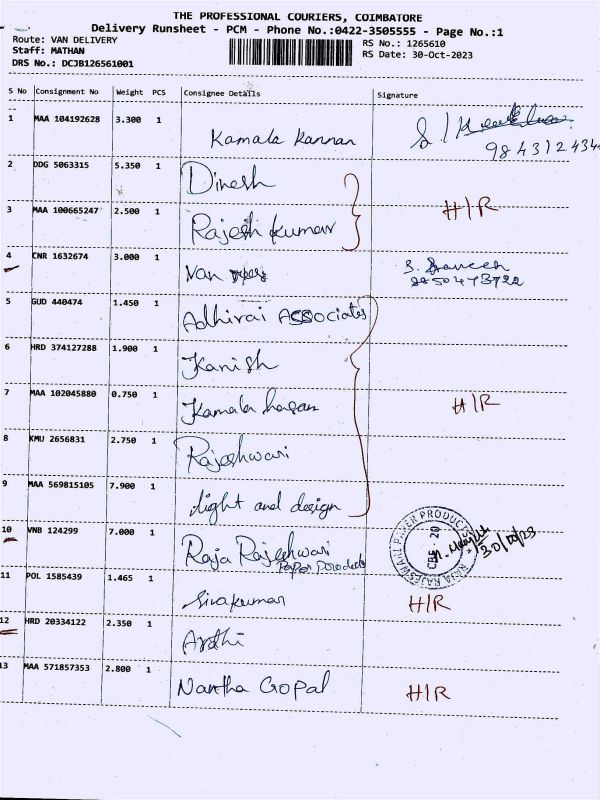 THE PROFESSIONAL COURIERS, COIMBATORE
Delivery Runsheet - PCM - Phone No.:0422-3505555 - Page No.:1
Route: VAN DELIVERY
Staff: MATHAN
DRS No.: DCJB126561001
RS No.: 1265610
RS Date: 30-Oct-2023
S No Consignment No Weight PCS Consignee Details Signature
1 MAA 104192628 3.300 1 Kamala Kannan
984312434
2 DDG 5063315 5.350 1 Dinesh
3 MAA 100665247 2.500 1 Rajesh kumar
H/R
4 CNR 1632674 3.000 1 Van
9850473722
5 GUD 440474 1.450 1 Adhirai Associates
6 HRD 374127288 1.900 1 Kanish
7 MAA 102045880 0.750 1 Kamala hasan
H/R
8 KMU 2656831 2.750 1 Rajeshwari
9 MAA 569815105 7.900 1 light and design
10 VNB 124299 7.000 1 Raja Rajeshwari
Paper Products
RAJA RAJESWARI PAPER PRODUCTS
CBE - 20
30/10/23
11 POL 1585439 1.465 1 Sivakumar H/R
12 HRD 20334122 2.350 1 Ardhi
13 MAA 571857353 2.800 1 Nantha Gopal H/R